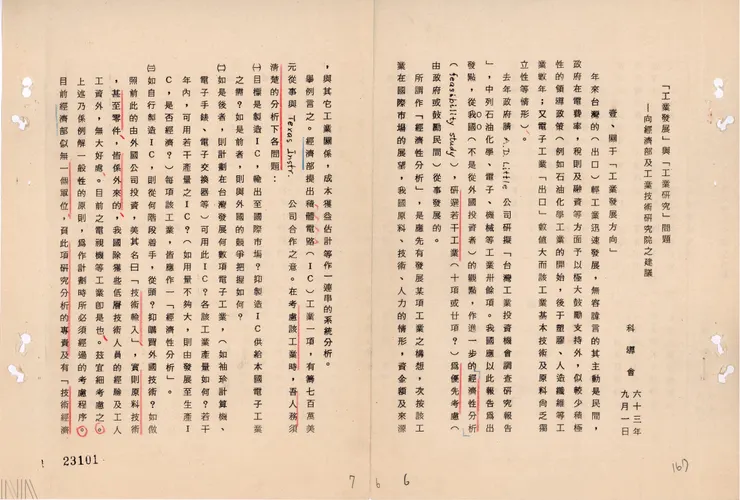 「工業發展」與「工業研究」問題
—向經濟部及工業技術研究院之建議
科導會 六十三年
九月一日
壹、關于「工業發展方向」
年來台灣的(出口)輕工業迅速發展，無容諱言的其主動是民間，
政府在電費率，稅則及融資等方面予以極大鼓勵支持外，似較少積極
性的領導政策(例如石油化學工業的開始，後于塑膠、人造纖維等工
業數年；又電子工業「出口」數值大而該工業基本技術及原料向乏獨
立性等情形)。
去年政府請 A.D. Little 公司研擬「台灣工業投資機會調查研究報告
」，中列石油化學、電子、機械等工業卅餘項。我國應以此報告為出
發點，從我國(不是從外國投資者)的觀點，作進一步的經濟性分析
(feasibility study)，研選若干工業(十項或廿項？)為優先考慮(
由政府或鼓勵民間)從事發展的。
所謂作「經濟性分析」，是應先有發展某項工業之構想，次按該工
業在國際市場的展望，我國原料、技術、人力的情形，資金額及來源
，與其它工業關係，成本獲益估計等作一連串的系統分析。
舉例言之。經濟部提出積體電路(IC)工業一項，有籌七百萬美
元從事與 Texas Instr. 公司合作之意。在考慮該工業時，吾人務須
清楚的分析下各問題：
㈠目標是製造IC，輸出至國際市場？抑製造IC供給本國電子工業
之需？如是前者，則與外國的競爭把握如何？
㈡如是後者，則計劃在台灣發展何數項電子工業，(如袖珍計算機、
電子手錶、電子交換器等)可用此IC？各該工業產量如何？若干
年內，可用若干產量之IC？(如用量不夠大，則由發展至生產I
C，是否經濟？)每項該工業，皆應作一「經濟性分析」。
㈢如自行製造IC，則從何階段着手，從頭？抑購買外國技術？如做
照前此的由外國公司投資，美其名曰「技術輸入」，實則原料技術
，甚至零件，皆係外來的，我國除獲些低層技術人員的經驗及工人
工資外，無大好處。目前之電視機等工業卽是也。茲宜細考慮之。
上述乃係例解一般性的原則，爲作計劃時所必須經過的考慮程序。
目前經濟部似無一個單位，負此項研究分析的專責及有「技術經濟
23101
7
6
6
167